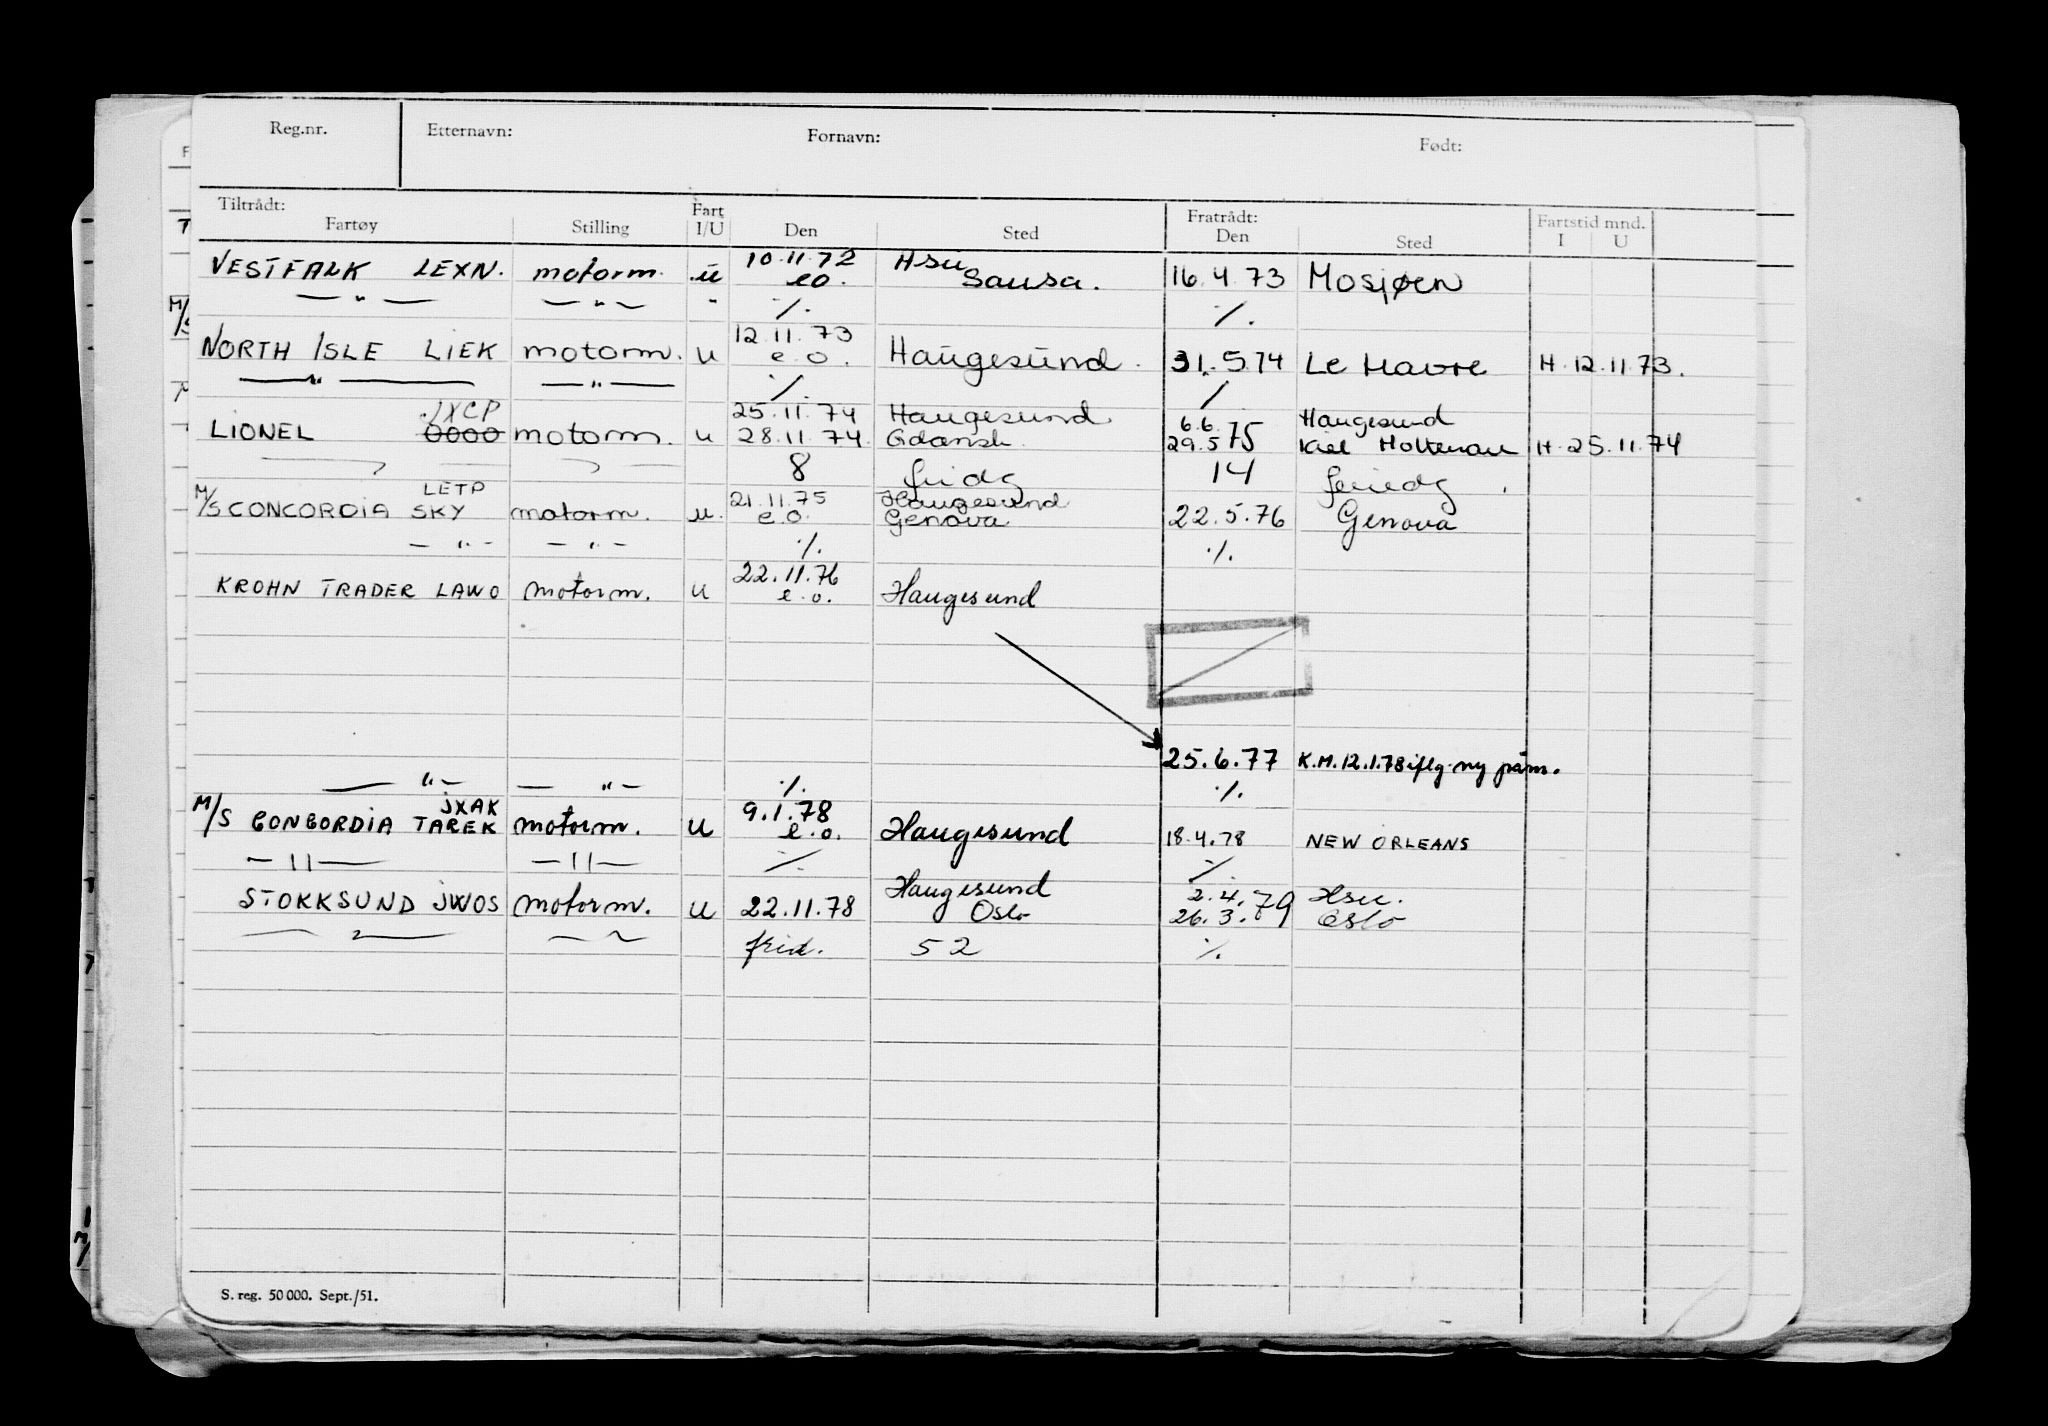 Reg.nr. Etternavn: Fornavn: Født:
Tiltrådt: Fart Fratrådt: Fartstid mnd.
Fartøy Stilling I/U Den Sted Den Sted I U
10.11.72 Hsu
VESTFALK LEXN. motorm. u eo. Sousa. 16.4.73 Mosjøen
— " — — " — " ·/. ·/.
12.11.73
NORTH ISLE LIEK motorm. u e.o. Haugesund. 31.5.74 Le Havre H.12.11.73.
— " — — " — ·/. /
JXCP 25.11.74 Haugesund 6.6. Haugesund
LIONEL 0000 motorm. u 28.11.74. Gdansk. 29.5 75 Kiel Holtenau H.25.11.74
8 14
LETP 21.11.75 Haugesund
M/S CONCORDIA SKY motorm. u. e.o. Genova 22.5.76 Genova
— " — — " — ·/. ·/.
22.11.76
KROHN TRADER LAWO motorm. u e.o. Haugesund
25.6.77 K.M.12.1.78 iflg. ny
— " — — " — ·/. ·/.
JXAK 9.1.78
M/S CONCORDIA TAREK motorm. u e.o. Haugesund 18.4.78 NEW ORLEANS
— " — — " — ·/. ·/.
Haugesund 2.4. Hsu.
STOKKSUND JWOS motorm. u 22.11.78 Oslo 26.3.79 Oslo
frid. 52 ·/.
S. reg. 50 000. Sept./51.